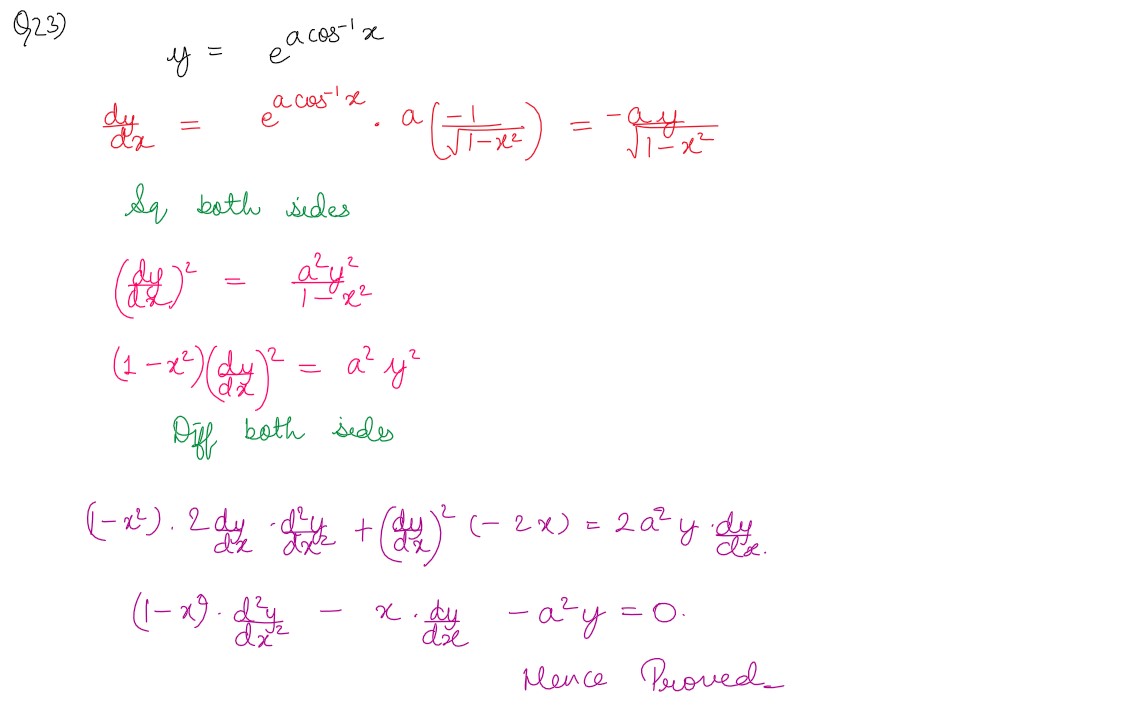 Q23)
y = e^{a cos⁻¹ x}
dy/dx = e^{a cos⁻¹ x} . a (-1/√(1-x²)) = -ay/√(1-x²)
Sq both sides
(dy/dx)² = a²y²/(1-x²)
(1-x²)(dy/dx)² = a² y²
Diff both sides
(1-x²) . 2 dy/dx . d²y/dx² + (dy/dx)² (-2x) = 2a² y . dy/dx.
(1-x²) . d²y/dx² - x . dy/dx - a² y = 0.
Hence Proved_